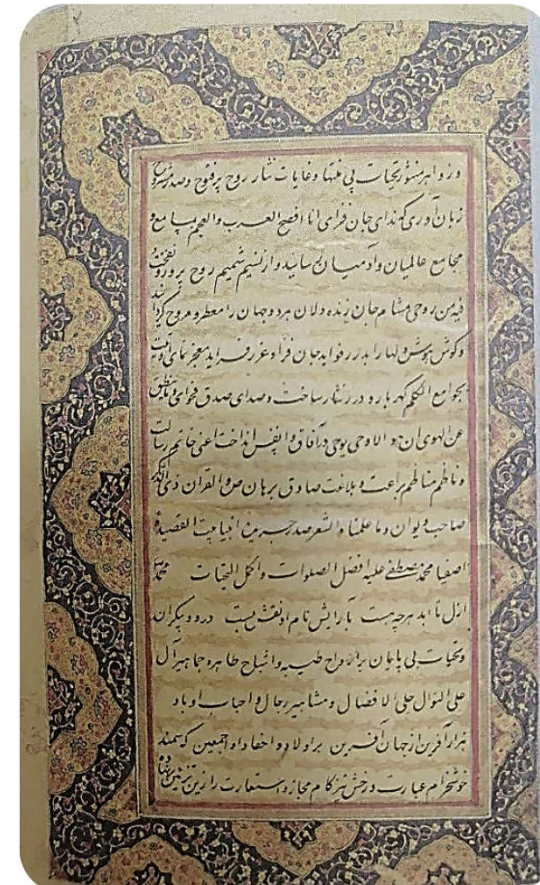 و زواهر منثور تحیات بی منتها و غایات نثار روح پر فتوح و صدر مشروح
زبان آوری که ندای جان فزای انا افصح العرب والعجم بمسامع و
مجامع عالمیان و آدمیان رسانید و از نسیم شمیم روح پرور و نفخت
فیه من روحی مشام جان زنده دلان هر دو جهان را معطر و مروح گردانید
و گوش هوش دلها را بدرر فواید جان فزا و غرر فراید معجز نمای اوتیت
بجوامع الکلم گهر بار و درر نثار ساخت و صدای صدق فحوای ما ینطق
عن الهوی ان هو الا وحی یوحی در آفاق و انفس انداخت اعنی خاتم رسالت
و ناظم مناظم براعت و بلاغت صادق برهان ص والقران ذی الذکر
صاحب دیوان و ما علمناه الشعر صدر جریده انبیا بیت القصیده
اصفیا محمد مصطفی علیه افضل الصلوات و اکمل التحیات محمد
ازل تا ابد هرچه هست بآرایش نام او نقش بست درود بیکران
و تحیات بی پایان بر ارواح طیبه و اشباح طاهره جماهیر آل
علی التوال حلی الافضال و مشاهیر رجال و احباب او باد
هزار آفرین از جهان آفرین بر اولاد و احفاد او اجمعین که سمند
خوشخرام عبارت و رخش تیز کام مجاز و استعارت را زین